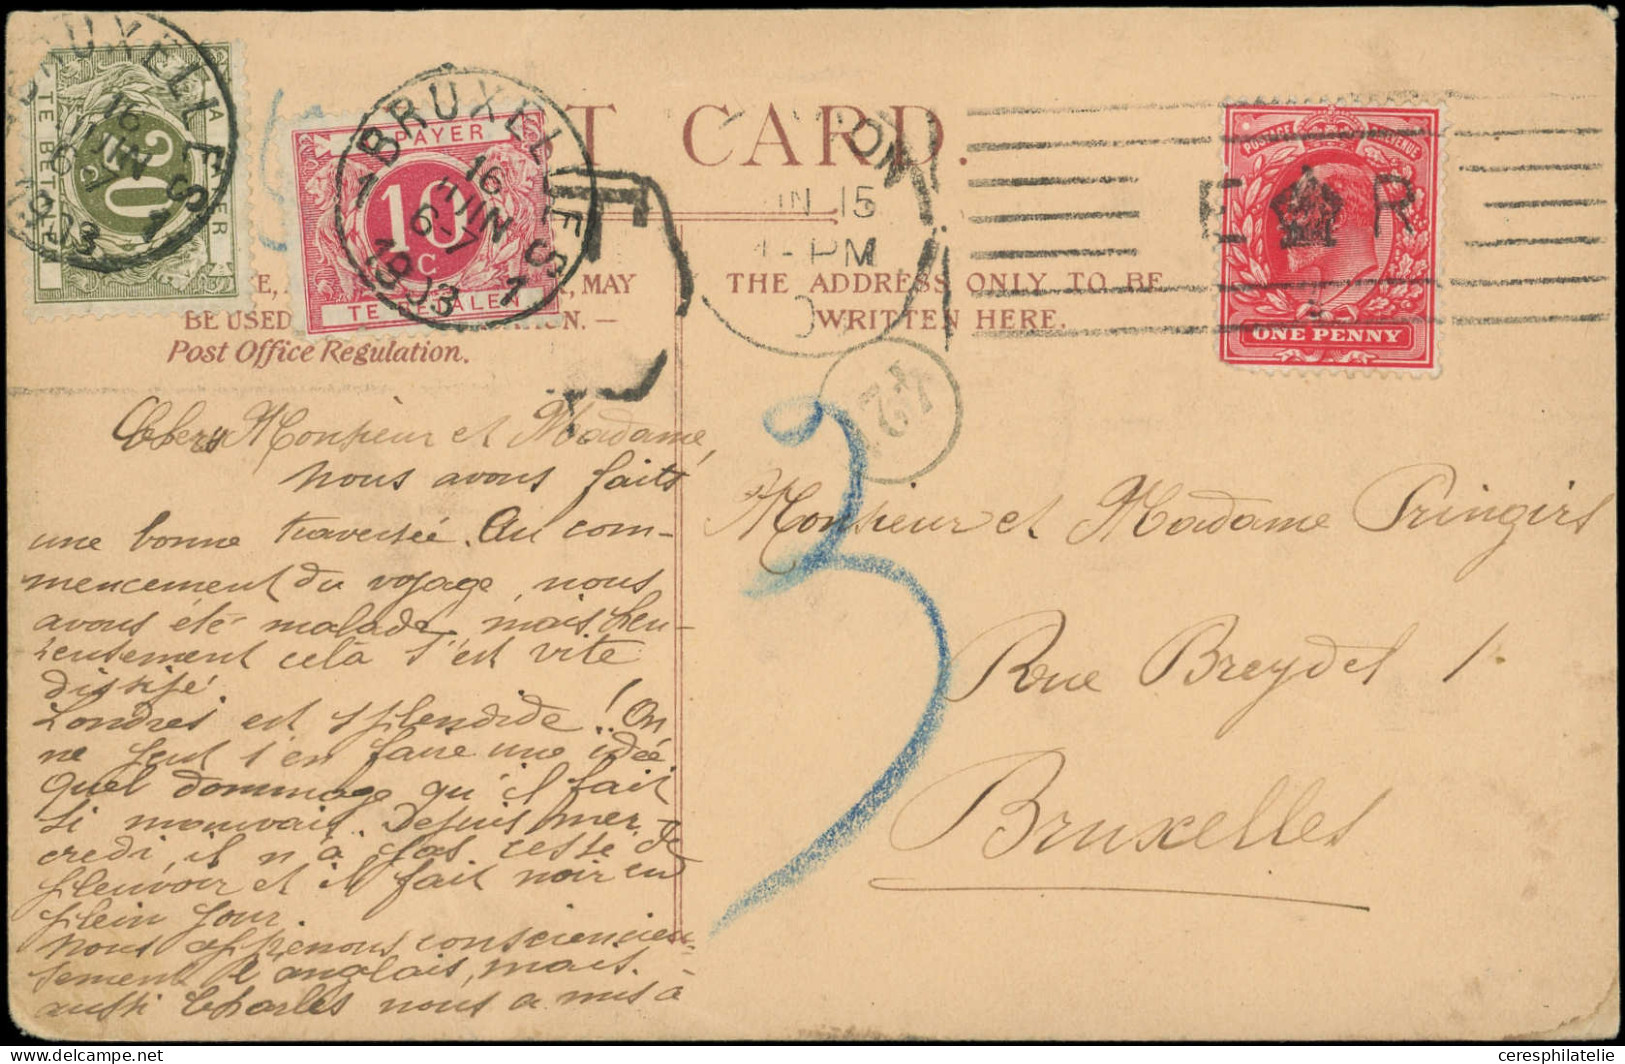 BRUXELLES
16
JUIN
6-7
1903
1
20
c
A PAYER
TE BETALEN
BRUXELLES
1
16
JUIN
6-7
1903
1
A PAYER
10
c
TE BETALEN
T
ST CARD.
ON
UN 15
PM
0
POSTAGE
REVENUE
E R
ONE PENNY
MAY
BE USED
Post Office Regulation.
THE ADDRESS ONLY TO BE
WRITTEN HERE.
3
Chers Monsieur et Madame,
nous avons faits
une bonne traversée. Au com-
mencement du voyage, nous
avons été malade, mais heu-
reusement cela s'est vite
dissipé.
Londres est splendide! On
ne peut s'en faire une idée
Quel dommage qu'il fait
si mauvais. Depuis mer-
credi, il n'a pas cessé de
pleuvoir et il fait noir en
plein jour.
Nous apprenons consciencieu-
sement l'anglais, mais
aussi Charles nous a mis à
Monsieur et Madame Pringiers
Rue Breydel 1
Bruxelles
ceresphilatelie